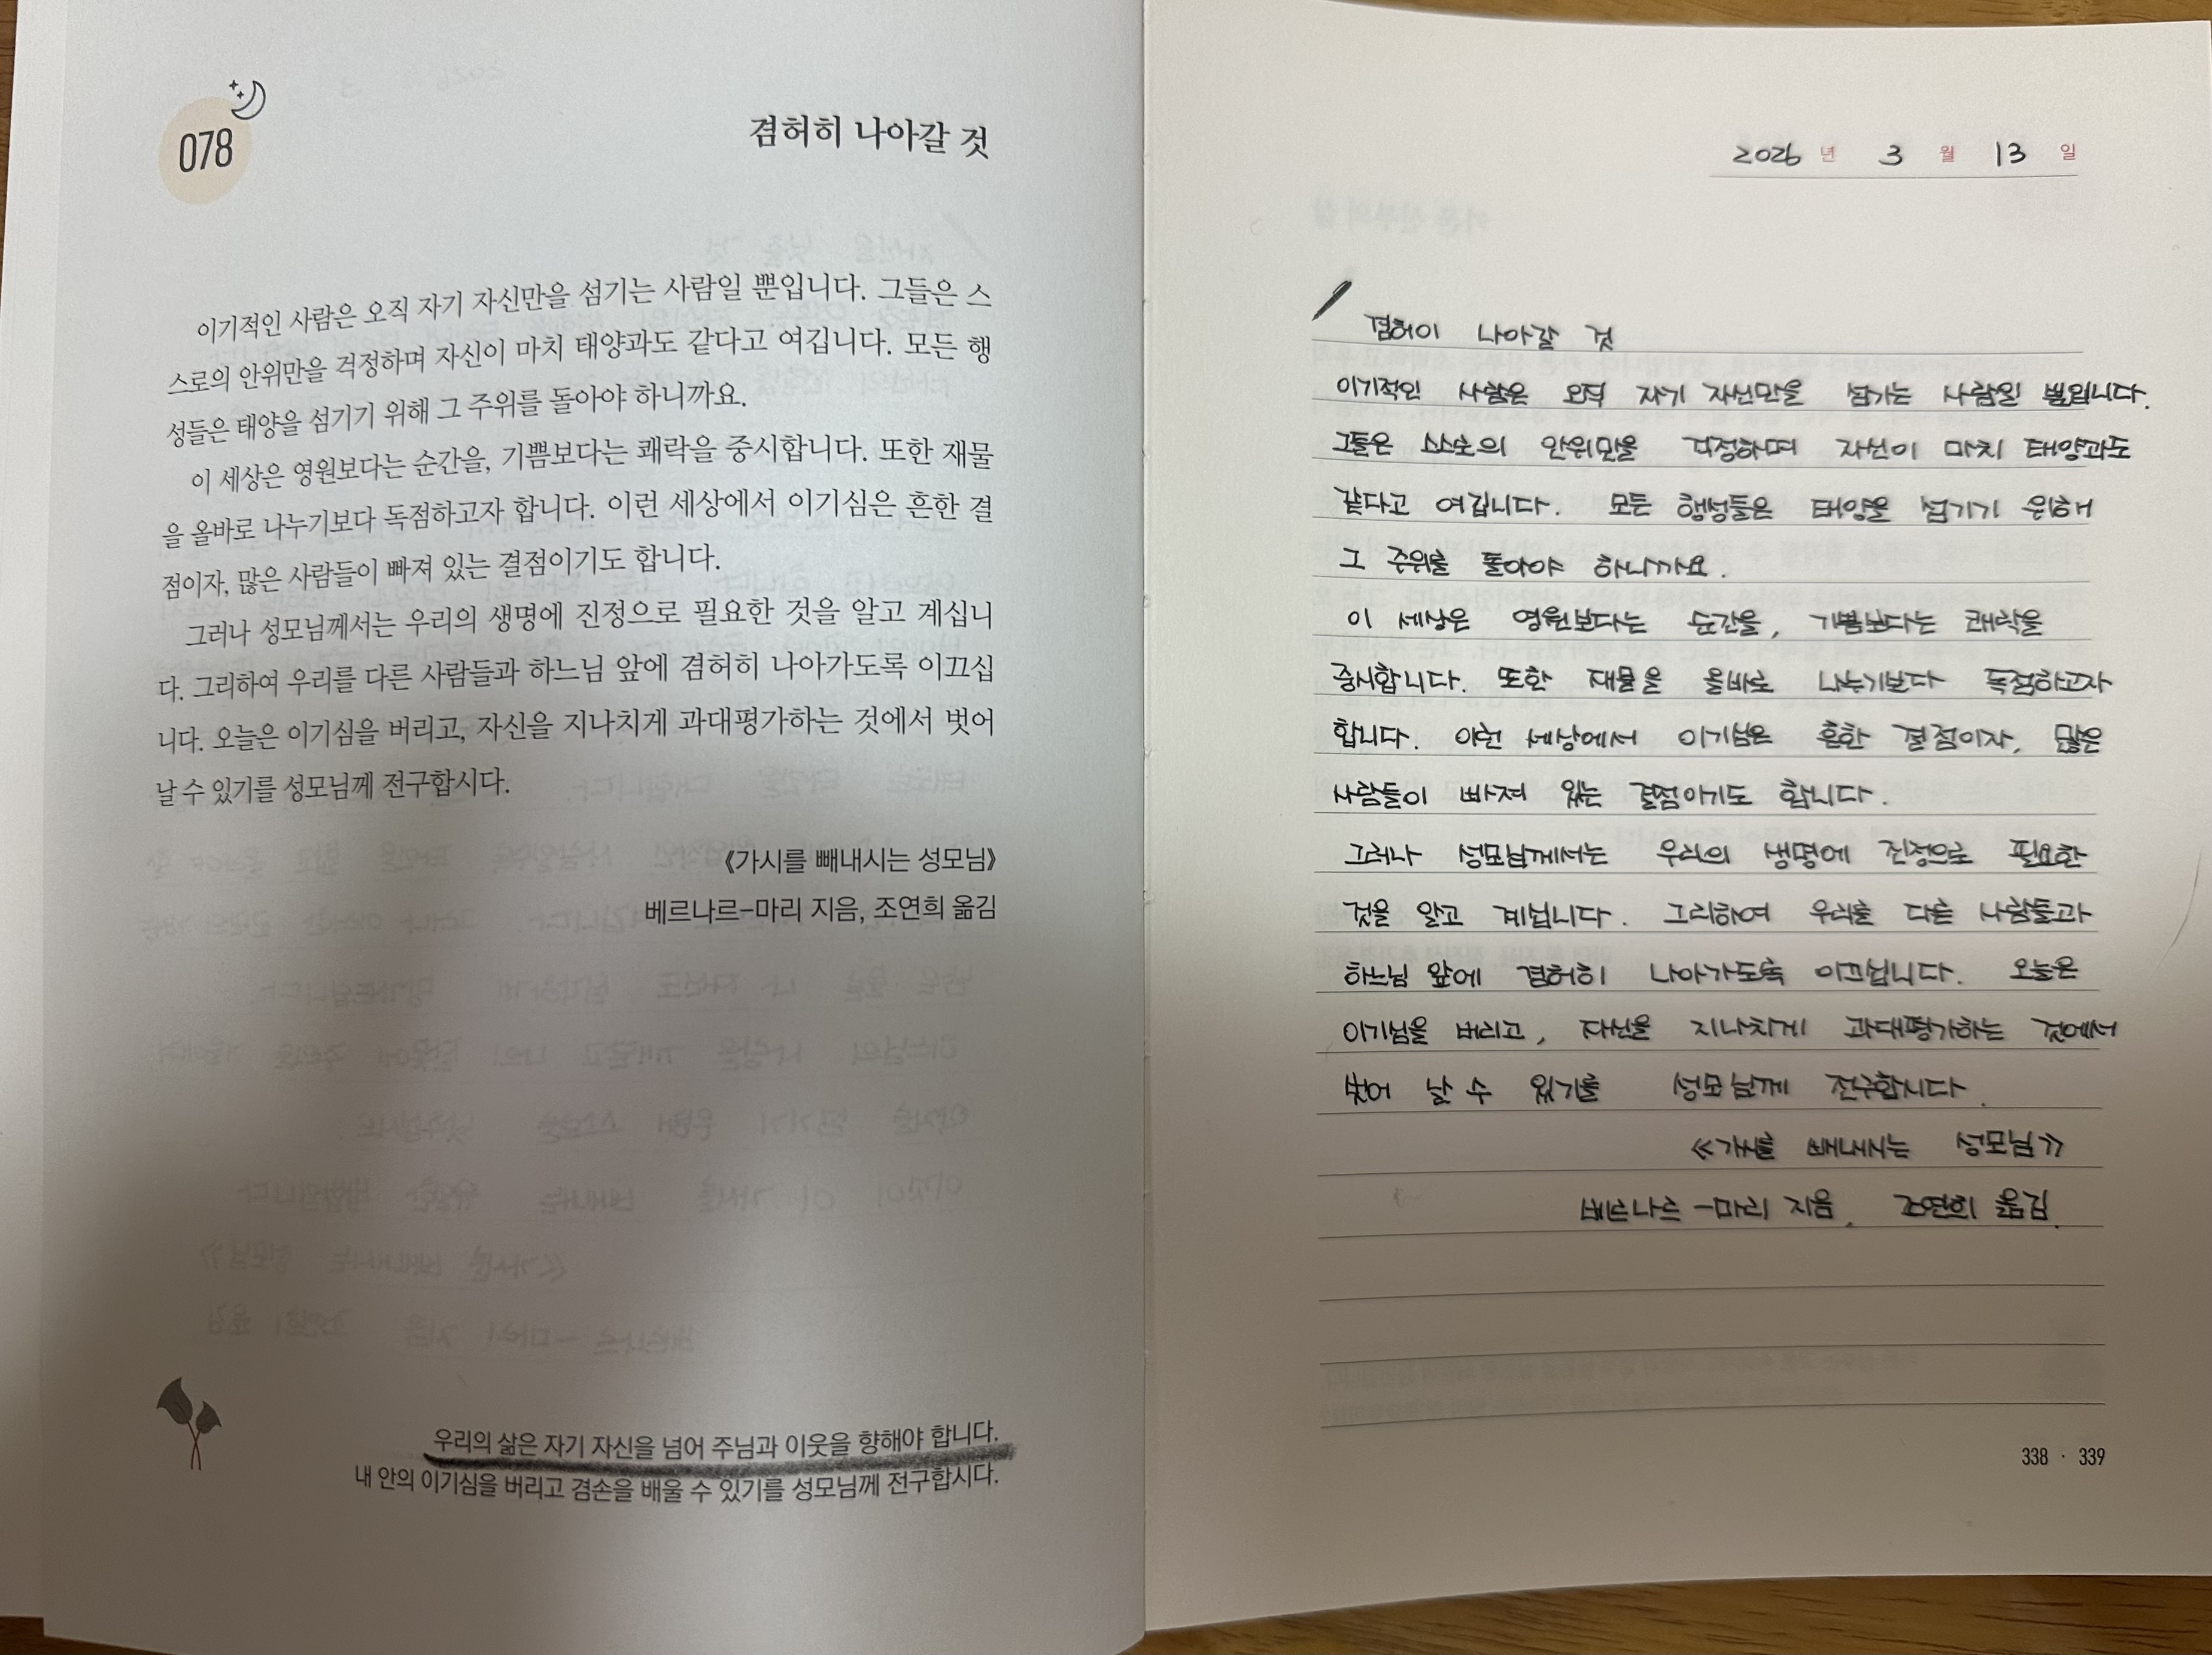 078
겸허히 나아갈 것
이기적인 사람은 오직 자기 자신만을 섬기는 사람일 뿐입니다. 그들은 스
스로의 안위만을 걱정하며 자신이 마치 태양과도 같다고 여깁니다. 모든 행
성들은 태양을 섬기기 위해 그 주위를 돌아야 하니까요.
이 세상은 영원보다는 순간을, 기쁨보다는 쾌락을 중시합니다. 또한 재물
을 올바로 나누기보다 독점하고자 합니다. 이런 세상에서 이기심은 흔한 결
점이자, 많은 사람들이 빠져 있는 결점이기도 합니다.
그러나 성모님께서는 우리의 생명에 진정으로 필요한 것을 알고 계십니
다. 그리하여 우리를 다른 사람들과 하느님 앞에 겸허히 나아가도록 이끄십
니다. 오늘은 이기심을 버리고, 자신을 지나치게 과대평가하는 것에서 벗어
날 수 있기를 성모님께 전구합시다.
《가시를 빼내시는 성모님》
베르나르-마리 지음, 조연희 옮김
우리의 삶은 자기 자신을 넘어 주님과 이웃을 향해야 합니다.
내 안의 이기심을 버리고 겸손을 배울 수 있기를 성모님께 전구합시다.
2026 년 3 월 13 일
겸허이 나아갈 것
이기적인 사람은 오직 자기 자신만을 섬기는 사람일 뿐입니다.
그들은 스스로의 안위만을 걱정하며 자신이 마치 태양과도
같다고 여깁니다. 모든 행성들은 태양을 섬기기 위해
그 주위를 돌아야 하니까요.
이 세상은 영원보다는 순간을, 기쁨보다는 쾌락을
중시합니다. 또한 재물을 올바로 나누기보다 독점하고자
합니다. 이런 세상에서 이기심은 흔한 결점이자, 많은
사람들이 빠져 있는 결점이기도 합니다.
그러나 성모님께서는 우리의 생명에 진정으로 필요한
것을 알고 계십니다. 그리하여 우리를 다른 사람들과
하느님 앞에 겸허히 나아가도록 이끄십니다. 오늘은
이기심을 버리고, 자신을 지나치게 과대평가하는 것에서
벗어 날 수 있기를 성모님께 전구합시다.
《가시를 빼내시는 성모님》
베르나르-마리 지음, 조연희 옮김.
338 · 339